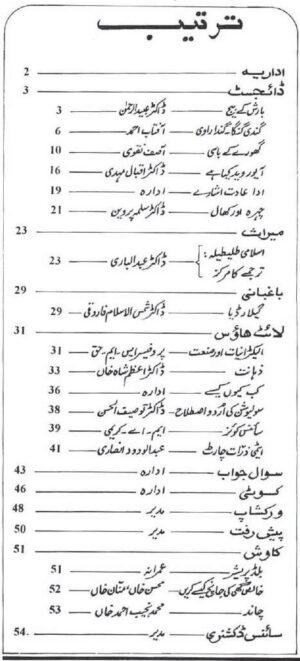 ترتیب
اداریہ 2
ڈائجسٹ 3
بارش کے بیج ڈاکٹر عبیدالرحمٰن 3
گندی گنگا۔ گندا راوی آفتاب احمد 6
گھورے کے باسی آصف نقوی 10
آیوروید کیا ہے ڈاکٹر اقبال مہدی 16
ادا عادت اشارے ادارہ 19
چہرہ اور کھال ڈاکٹر سلمہ پروین 21
میراث 23
اسلامی طلیطیلہ:
ترجمے کا مرکز ڈاکٹر عبدالباری 23
باغبانی 29
گیلارڈیا ڈاکٹر شمس الاسلام فاروقی 29
لائٹ ہاؤس 31
الیکٹرانیات اور صنعت پروفیسر ایس۔ایم۔حق 31
ذہانت ڈاکٹر اعظم شاہ خاں 33
کب کیوں کیسے ادارہ 36
سولیوشن کی اُردو اصطلاح ڈاکٹر توصیف الحسن 38
سائنس کوئز ایم۔اے۔کریمی 39
ایٹمی ذرات چارٹ عبدالودود انصاری 41
سوال جواب ادارہ 43
کسوٹی ادارہ 46
ورکشاپ مدیر 48
پیش رفت مدیر 50
کاوش 51
بلڈ پریشر عمرانہ 51
خالص گھی کی جانچ کیسے کریں محسن خاں/منان خاں 52
چاند محمد نجیب احمد خاں 53
سائنس ڈکشنری مدیر 54